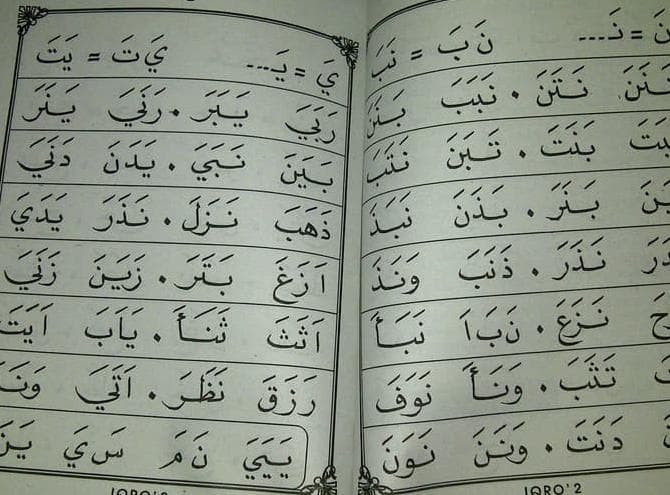 نَ = نَـ... نَ بَ = نَبَ
نَتَنَ . نَبَبَ بَنَنَ
بَنَتَ . تَبَنَ نَتَبَ
بَنَرَ . بَذَنَ نَبَذَ
نَذَرَ . ذَنَبَ وَنَذَ
نَزَعَ . نَبَاَ نَبَأَ
تَثَبَ . وَنَأَ نَوَفَ
دَنَتَ . وَنَنَ نَوَنَ
IQRO' 2
يَ = يَـ... يَ تَ = يَتَ
رَبَيَ يَبَرَ . رَنَيَ يَنَرَ
بَيَنَ نَبَيَ . يَدَنَ دَنَيَ
ذَهَبَ نَزَلَ . نَذَرَ يَدَيَ
اَزَغَ بَتَرَ . زَيَنَ زَنَيَ
اَثَثَ ثَنَأَ . يَاَبَ اَيَتَ
رَزَقَ نَظَرَ . اَتَيَ
يَيَيَ نَ مَ سَ يَ
IQRO' 2